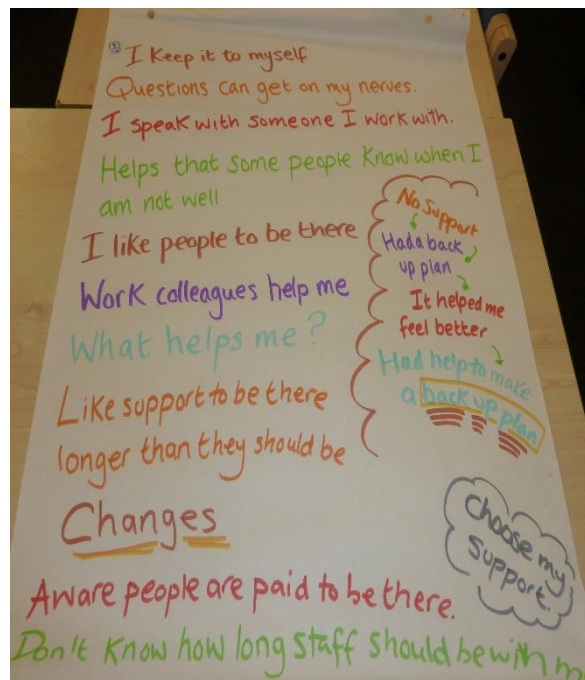 I Keep it to myself
Questions can get on my nerves.
I speak with someone I work with.
Helps that some people know when I
am not well
I like people to be there
Work colleagues help me
What helps me?
Like support to be there
longer than they should be
No Support
Had a back
up plan
It helped me
feel better
Had help to make
a back up plan
Changes
Choose my
Support.
Aware people are paid to be there.
Don't know how long staff should be with m